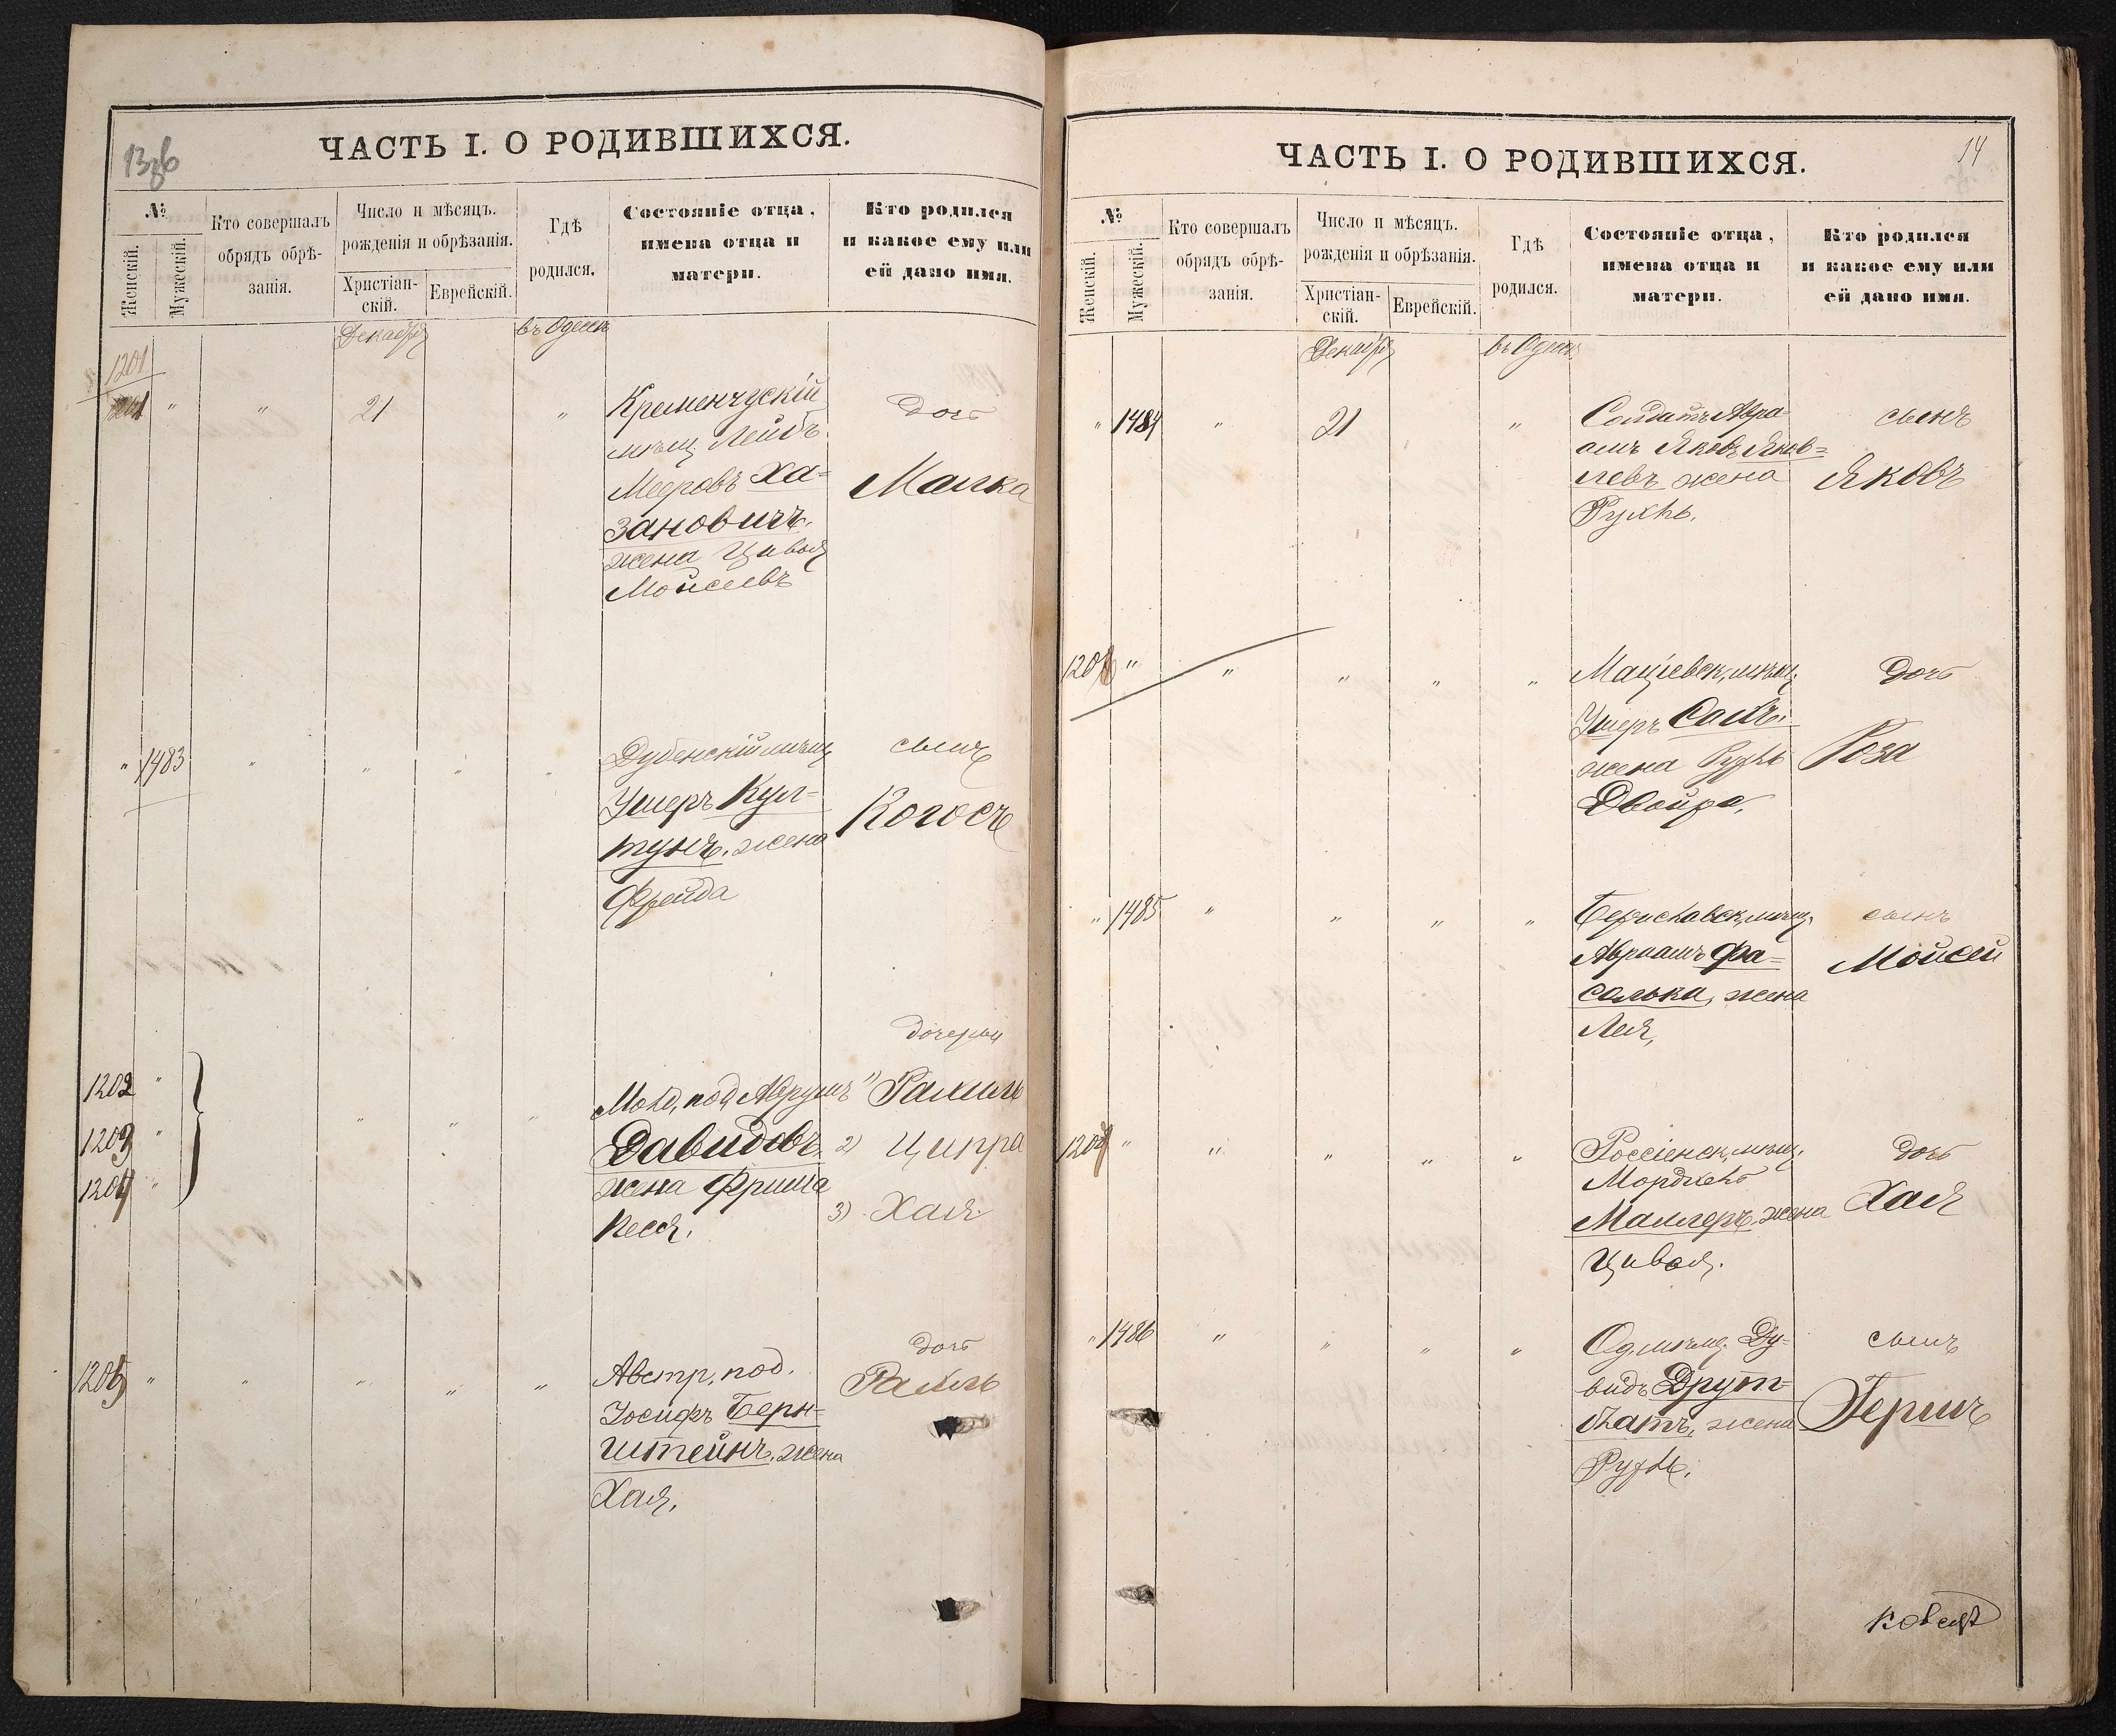 13об
ЧАСТЬ I. О РОДИВШИХСЯ.
№
Женскій.
Мужескій.
Кто совершалъ
обрядъ обрѣ-
занія.
Число и мѣсяцъ.
рожденія и обрѣзанія.
Христіан-
скій.
Еврейскій.
Гдѣ
родился.
Состояніе отца,
имена отца и
матери.
Кто родился
и какое ему или
ей дано имя.
Декабря
въ Одессѣ
1201
" " 21 "
Кременчугскій
мѣщ. Лейбъ
Мееровъ Ха-
зановичъ.
жена Цивья
Моисеевъ
дочь
Малка
" 1483 " " " "
Дубенскій мѣщ
Ушеръ Кул-
тунъ. жена
Фрейда
сынъ
Когосъ
1202 "
1203 "
1204 "
" " "
Молд. под. Аврумъ
Давидовъ
жена Фрима
Песя.
дочери
1) Рахиль
2) Ципра
3) Хая.
1205 " " " " "
Австр. под.
Іосифъ Берн-
штейнъ. жена
Хая.
дочь
Рахиль
14
ЧАСТЬ I. О РОДИВШИХСЯ.
№
Женскій.
Мужескій.
Кто совершалъ
обрядъ обрѣ-
занія.
Число и мѣсяцъ.
рожденія и обрѣзанія.
Христіан-
скій.
Еврейскій.
Гдѣ
родился.
Состояніе отца,
имена отца и
матери.
Кто родился
и какое ему или
ей дано имя.
Декабря
въ Одессѣ
" 1484 " 21 "
Солдатъ Авра-
амъ Яковъ Яков-
левъ жена
Рухль.
сынъ
Яковъ
1206 " " " " "
Маціевск. мѣщ.
Ушеръ
жена Рухль
Двойра.
дочь
Роза
" 1485 " " " "
Бериславск. мѣщ.
Авраамъ Фа-
солька, жена
Лея,
сынъ
Мойсей
1207 " " " " "
Россіенск. мѣщ.
Мордхель
Маллеръ. жена
Цивья.
дочь
Хая
" 1486 " " " "
Од. мѣщ. Ду-
видъ Друт-
блатъ, жена
Рухль.
сынъ
Гершъ